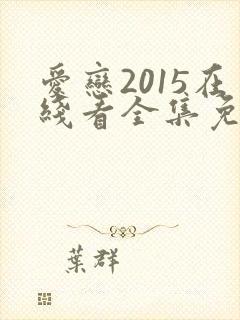 愛戀2015在
綫看全集免
葉群